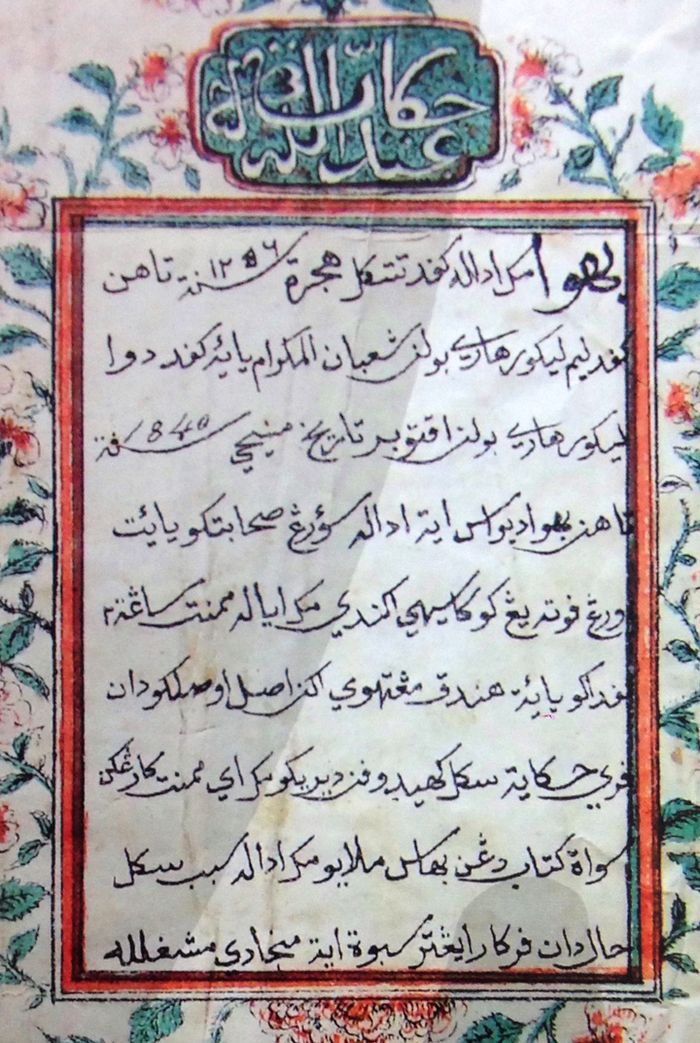 حكاية
عبدالله القادر
بهوا مك اداله كفد تتكل هجرة سنة ١٢٥٦ تاهن
كفد ليم ليكور هاري بولن شعبان المكرام يائيت كفد دوا
ليكور هاري بولن اقتوبر تاريخ مسيحي سنة 1840
تاهن بهوا ديواس ايت اداله سؤرڠ صحابتكو يائيت
اورڠ فوته يڠ كو كاسيهي اكندي مك اياله ممنت ساڠت٢
كفداكو يائيت هندق مڠتهوي اكن اصل اوصلكو دان
فري حكاية سڬل كهيدوفن ديريكو مك اي ممنت كارڠكن
سواة كتاب دڠن بهاس ملايو مك اداله سبب سكل
حال دان فركار ايڠتر سبوة ايت منجادي مشغلله